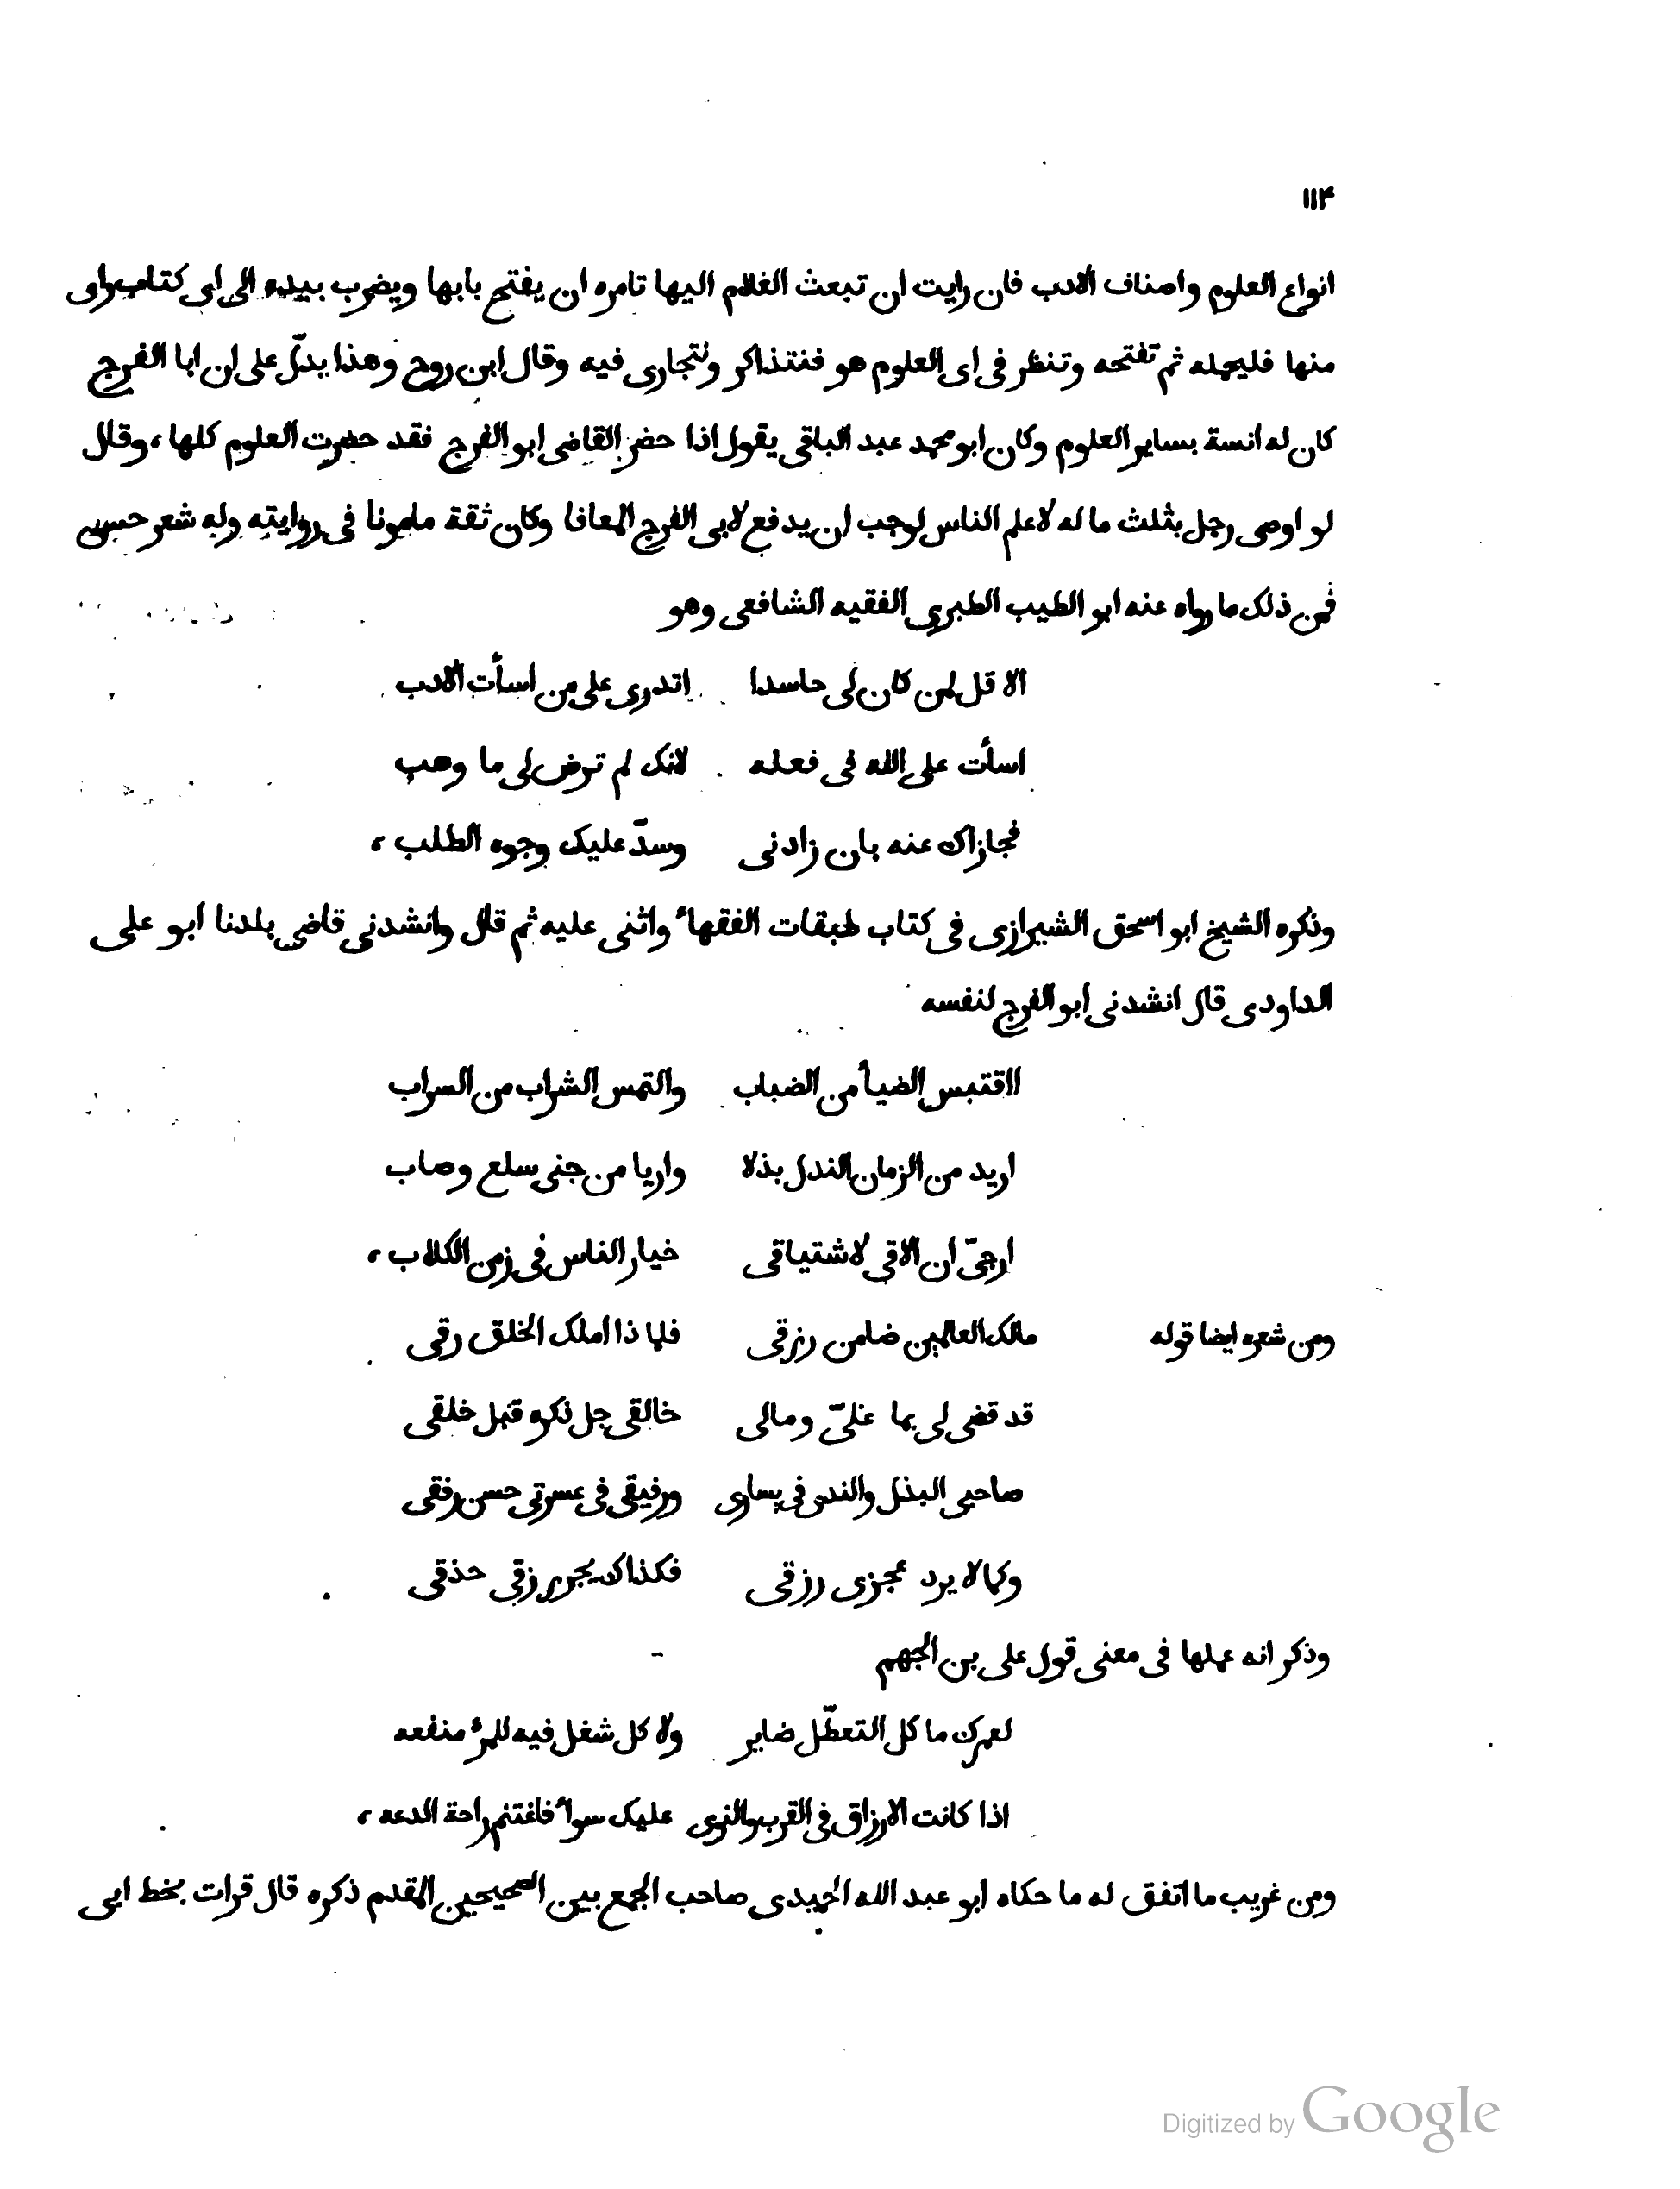 ١١٤
انواع العلوم واصناف الادب فان رايت ان تبعث الغلام اليها تامره ان يفتح بابها ويضرب بيده الى اى كتاب راى
منها فليحمله ثم تفتحه وتنظر فى اى العلوم هو فنتذاكر ونتجارى فيه وقال ابن روح وهذا يدلّ على ان ابا الفرج
كان له انسة بساير العلوم وكان ابو محمد عبد الباقى يقول اذا حضر القاضى ابو الفرج فقد حضرت العلوم كلها، وقال
لو اوصى رجل بثلث ماله لاعلم الناس لوجب ان يدفع لابى الفرج المعافا وكان ثقة مامونا فى روايته وله شعر حسن
فمن ذلك ما رواه عنه ابو الطيب الطبرى الفقيه الشافعى وهو
الا قل لمن كان لى حاسدا اتدرى على من اسأت الادب
اسأت على الله فى فعله لانك لم ترض لى ما وهب
فجازاك عنه بان زادنى وسدّ عليك وجوه الطلب،
وذكره الشيخ ابو اسحق الشيرازى فى كتاب طبقات الفقهاء واثنى عليه ثم قال وانشدنى قاضى بلدنا ابو على
الداودى قال انشدنى ابو الفرج لنفسه
ااقتبس الضياء من الضباب والتمس الشراب من السراب
اريد من الزمان الندل بذلا واريا من جنى سلع وصاب
ارجىّ ان الاقى لاشتياقى خيار الناس فى زمن الكلاب،
ومن شعره ايضا قوله مالك العالمين ضامن رزقى فلماذا املك الخلق رقى
قد قضى لى بما علىّ ومالى خالقى جل ذكره قبل خلقى
صاحبى البذل والندى فى يسارى ورفيقى فى عسرتى حسن رفقى
وكما لا يرد عجزى رزقى فكذاك يجرى رزقى حذقى
وذكر انه عملها فى معنى قول على بن الجهم
لعمرك ما كل التعطّل ضاير ولا كل شغل فيه للمرء منفعه
اذا كانت الارزاق فى القرب والنوى عليك سواء فاغتنم راحة الدعه،
ومن غريب ما اتفق له ما حكاه ابو عبد الله الحميدى صاحب الجمع بين الصحيحين المقدم ذكره قال قرات بخط ابى
Digitized by Google